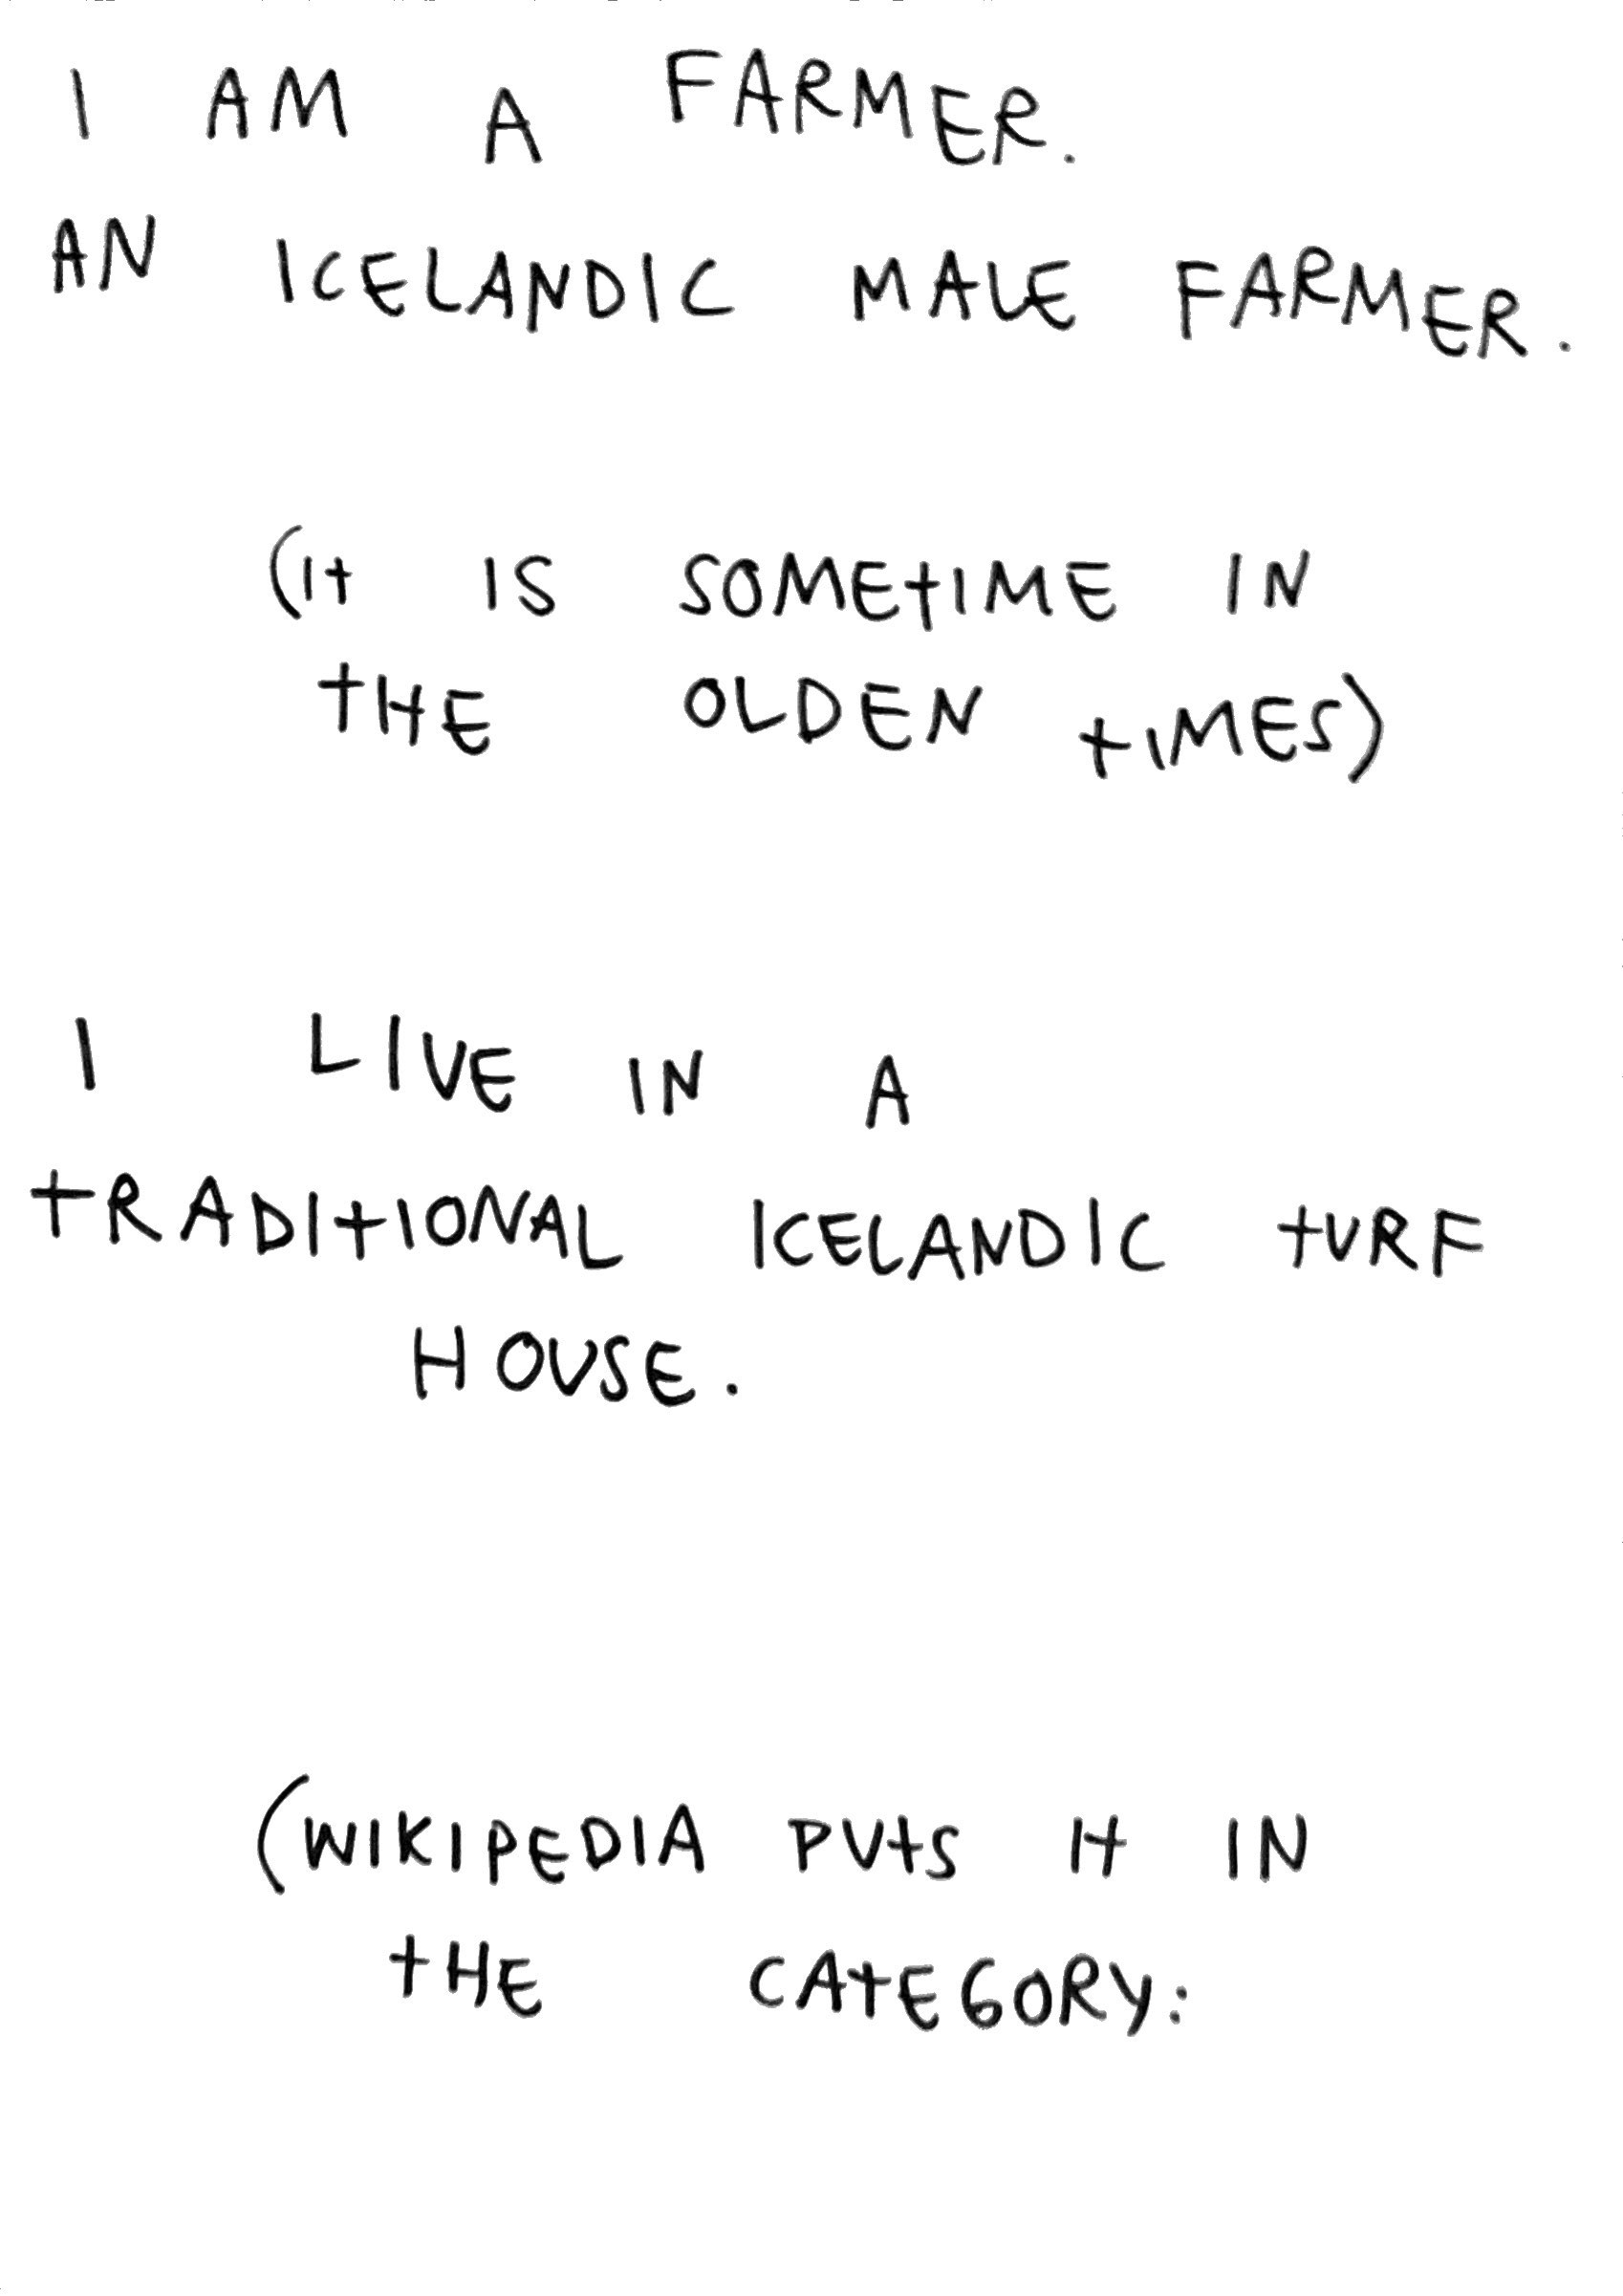 I AM A FARMER.
AN ICELANDIC MALE FARMER.
(It IS SOMEtIME IN
tHE OLDEN tIMES)
I LIVE IN A
tRADItIONAL ICELANDIC tURF
HOUSE.
(WIKIPEDIA PUtS It IN
tHE CAtEGORY: